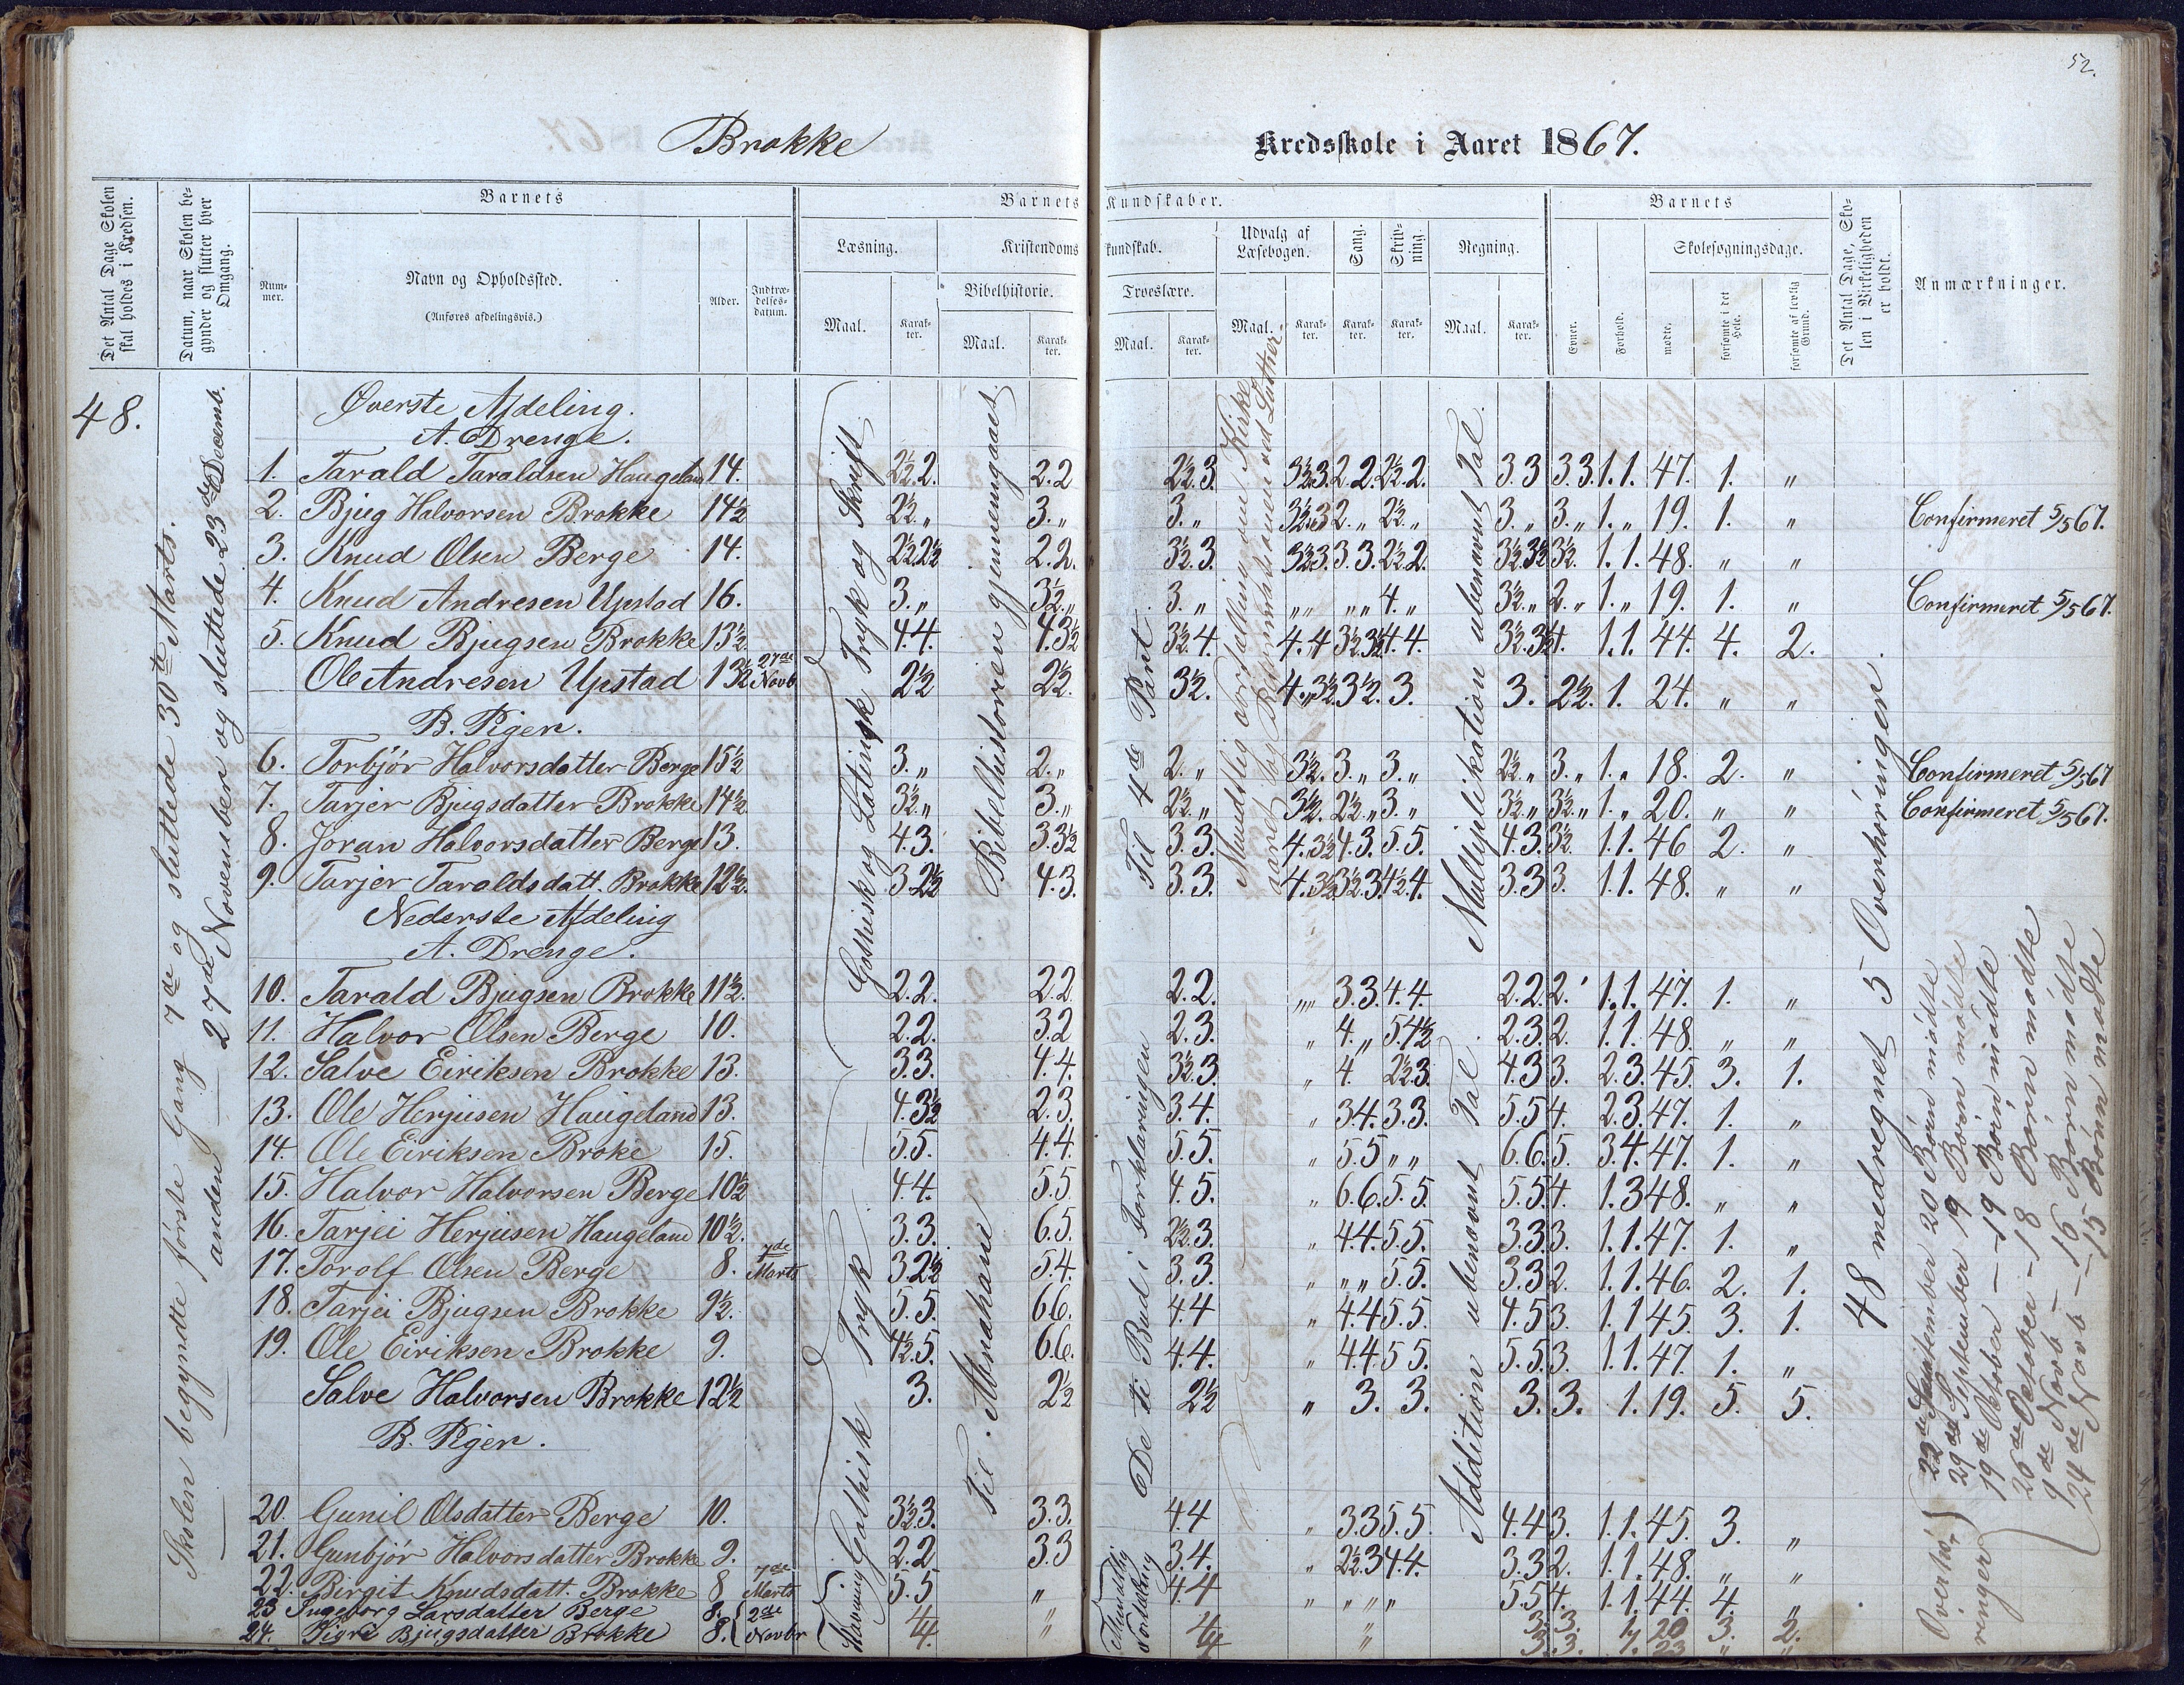 52.
Brokke
Kredsskole i Aaret 1867.
Det Antal Dage Skolen skal holdes i Kredsen.
Datum, naar Skolen begynder og slutter hver Omgang.
Barnets
Nummer.
Navn og Opholdssted.
(Anføres afdelingsvis.)
Alder.
Indtrædelsesdatum.
Barnets Kundskaber.
Læsning.
Maal.
Karakter.
Kristendomskundskab.
Bibelhistorie.
Maal.
Karakter.
Troeslære.
Maal.
Karakter.
Udvalg af Læsebogen.
Maal.
Karakter.
Sang.
Karakter.
Skrivning.
Karakter.
Regning.
Maal.
Karakter.
Barnets
Evner.
Forhold.
Skolesøgningsdage.
mødte.
forsømte i det Hele.
forsømte af lovlig Grund.
Det Antal Dage, Skolen i Virkeligheden er holdt.
Anmærkninger.
48.
Skolen begyndte første Gang 7de og sluttede 30te Marts.
anden 27de November og sluttede 23de Decemb.
Gothisk og Latinsk Tryk og Skrift
Gothisk Tryk
Bibelhistorien gjennemgaaet
Til Abraham
Til 4de Part
De ti Bud i Forklaringen
Mundtlig
Fortælling
Multiplikation ubenævnt Tal
Addition ubenævnt Tal
48 medregnet 5 Overhøringer
Øverste Afdeling.
A. Drenge.
1. Tarald Taraldsen Haugeland 14. 2½ 2. 2. 2 2½ 3. 3½ 3. 2. 2. 2½ 2. 3. 3 3. 3. 1. 1. 47. 1. "
2. Bjug Halvorsen Brokke 14½ 2½ " 3. " 3. " 3½ 3 2. " 2½ " 3. " 3. " 1. " 19. 1. " Confirmeret 5/5 67.
3. Knud Olsen Berge 14. 2½ 2½ 2. 2. 3½ 3. 3½ 3 3. 3. 2½ 2. 3½ 3½ 3½ 1. 1. 48. " "
4. Knud Andresen Upstad 16. 3. " 3½ " 3. " " " " " 4. " 3½ " 2. " 1. " 19. 1. " Confirmeret 5/5 67.
5. Knud Bjugsen Brokke 13½ 4. 4. 4. 3½ 3½ 4. 4. 4 3½ 3½ 4. 4. 3½ 3½ 4. 1. 1. 44. 4. 2.
Ole Andresen Upstad 13½ 27de Novb 2½ 2½ 3½ 4. 3½ 3½ 3. 3. 2½ 1. 24. " "
B. Piger.
6. Torbjør Halvorsdatter Berge 15½ 3. " 2. " 2. " 3½ 3. " 3. " 2½ " 3. " 1. " 18. 2. " Confirmeret 5/5 67
7. Tarjer Bjugsdatter Brokke 14½ 3½ " 3. " 2½ " 3½ 2½ " 3. " 3½ " 3½ " 1. " 20. " " Confirmeret 5/5 67.
8. Joran Halvorsdatter Berge 13. 4. 3. 3. 3½ 3. 3. 4. 3½ 4. 3. 5. 5. 4. 3. 3½ 1. 1. 46 2. "
9. Tarjer Taraldsdatt. Brokke 12½ 3. 2½ 4. 3. 3. 3. 4. 3½ 3½ 3. 4½ 4. 3. 3 3. 1. 1. 48. " "
Nederste Afdeling
A. Drenge.
10. Tarald Bjugsen Brokke 11½. 2. 2. 2. 2 2. 2. " " 3. 3. 4. 4. 2. 2. 2. 1. 1. 47. 1. "
11. Halvor Olsen Berge 10. 2. 2. 3. 2 2. 3. " 4. " 5. 4½ 2. 3. 2. 1. 1. 48. " "
12. Salve Eiriksen Brokke 13. 3. 3. 4. 4. 3½ 3. " 4. 2½ 3. 4. 3 3. 2. 3. 45. 3. 1.
13. Ole Herjusen Haugeland 13. 4. 3½ 2. 3. 3. 4. " 3. 4. 3. 3. 5. 5 4. 2. 3. 47. 1. "
14. Ole Eiriksen Broke 15. 5. 5. 4. 4. 5. 5. " 5. 5 " " 6. 6. 5. 3. 4. 47. 1. "
15. Halvor Halvorsen Berge 10½ 4. 4. 5. 5 4. 5. " 6. 6. 5. 5. 5. 5 4. 1. 3 48. " "
16. Tarjei Herjusen Haugeland 10½. 3. 3. 6. 5. 2½ 3. " 4. 4. 5. 5. 3. 3. 3. 1. 1. 47. 1. "
17. Torolf Olsen Berge 8. 7de Marts 3. 2½ 5. 4. 3. 3. " " " 5. 5. 3. 3 2. 1. 1. 46. 2. 1.
18. Tarjei Bjugsen Brokke 9½. 5. 5. 6 6. 4. 4 " 4. 4 5 5. 4. 5 3. 1. 1 45. 3. 1.
19. Ole Eiriksen Brokke 9. 4½ 5. 6. 6. 4. 4. " 4. 4 5 5. 5. 5. 3. 1. 1. 47. 1. "
Salve Halvorsen Brokke 12½ 3. 2½ 2½ " 3. 3. 3. 3. 1. 19. 5. 5.
B. Piger.
20. Gunil Olsdatter Berge 10. 3½ 3. 3. 3. 4. 4 " 3. 3 5. 5. 4. 4 3. 1. 1. 45. 3. "
21. Gunbjør Halvorsdatter Brokke 9. 2. 2 3. 3 3. 4. " 2½ 3 4. 4. 3. 3 2. 1. 1. 48. " "
22. Birgit Knudsdatt. Brokke 8 7de Marts 5. 5 " 4. 4 " " " " 5. 5 4. 1. 1. 44. 4. "
23 Ingeborg Larsdatter Berge 8. 2de Novbr 4. " 4 " 3. 3. 1. 20 3. 2.
24. Sigri Bjugsdatter Brokke 8. 4. " 4 " 3. 3. 1. 23 " "
Overhøringer
22de September 20 Børn mødte
29de September 19 Børn mødte
19de October — 19 Børn mødte
26de October — 18 Børn mødte
9de Novb — 16 Børn mødte
24de Novb — 15 Børn mødte